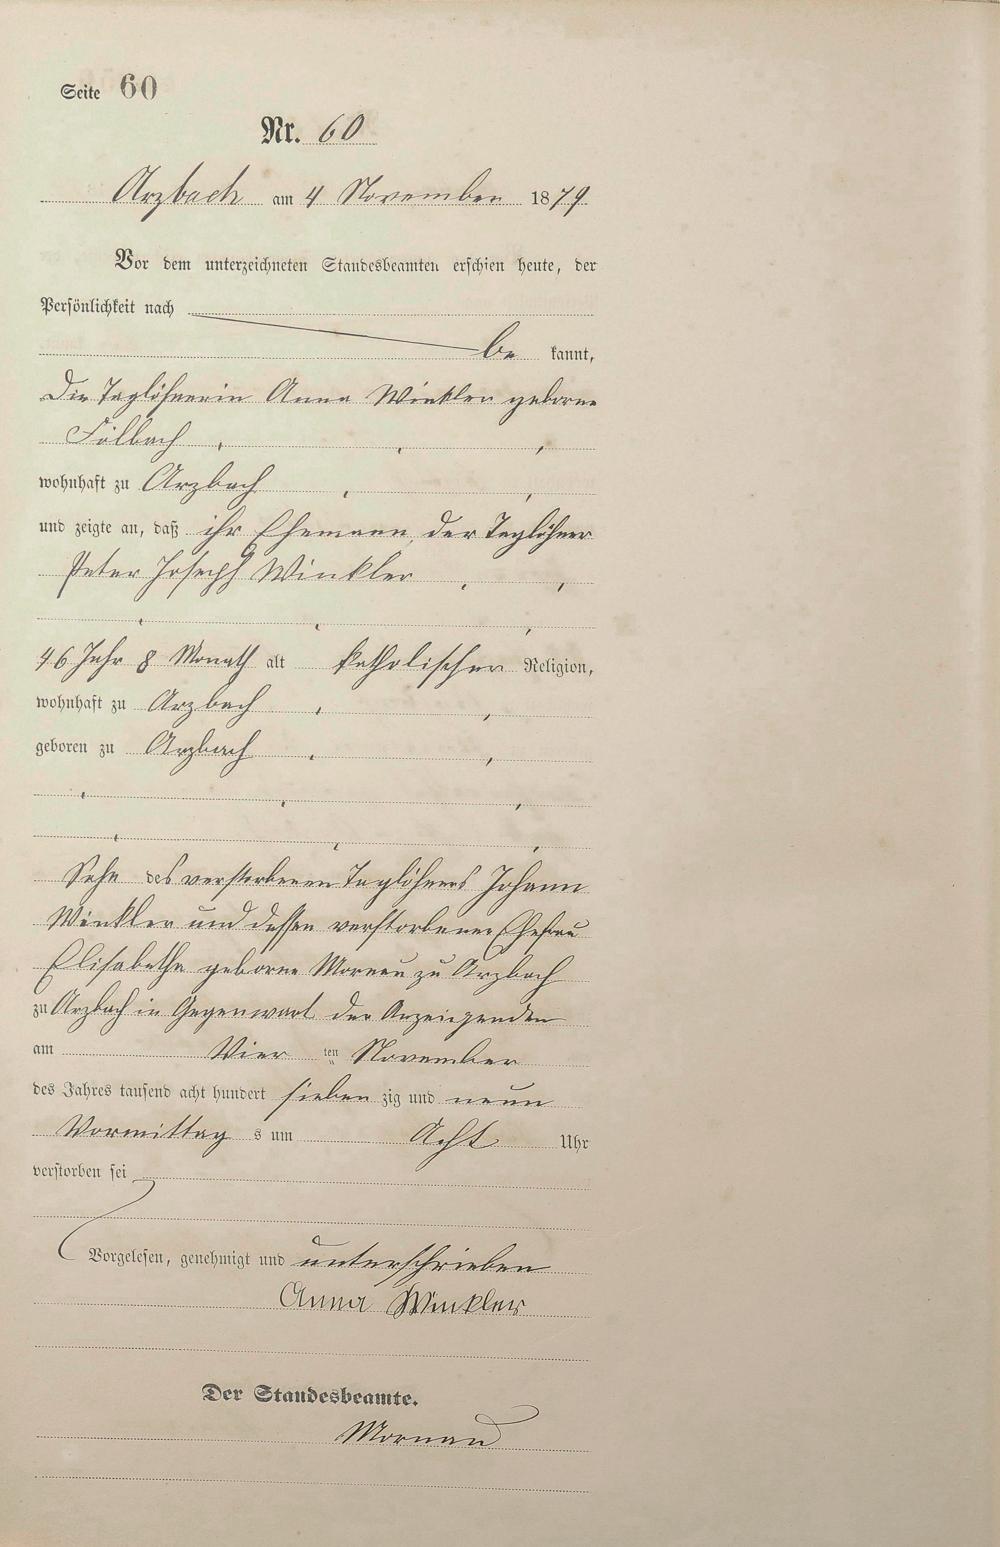 Seite 60
Nr. 60
Arzbach am 4 November 1879
Vor dem unterzeichneten Standesbeamten erschien heute, der
Persönlichkeit nach
be kannt,
Die Taglöhnerin Anna Winkler geborne
Fölbach
wohnhaft zu Arzbach
und zeigte an, daß ihr Ehemann, der Taglöhner
Peter Joseph Winkler
46 Jahr 8 Monath alt katholischer Religion,
wohnhaft zu Arzbach
geboren zu Arzbach
Sohn des verstorbenen Taglöhners Johann
Winkler und dessen verstorbener Ehefrau
Elisabetha geborne Mornau zu Arzbach
zu Arzbach in Gegenwart der Anzeigenden
am Vier ten November
des Jahres tausend acht hundert sieben zig und neun
Vormittag s um Acht Uhr
verstorben sei
Vorgelesen, genehmigt und unterschrieben
Anna Winkler
Der Standesbeamte.
Mornau